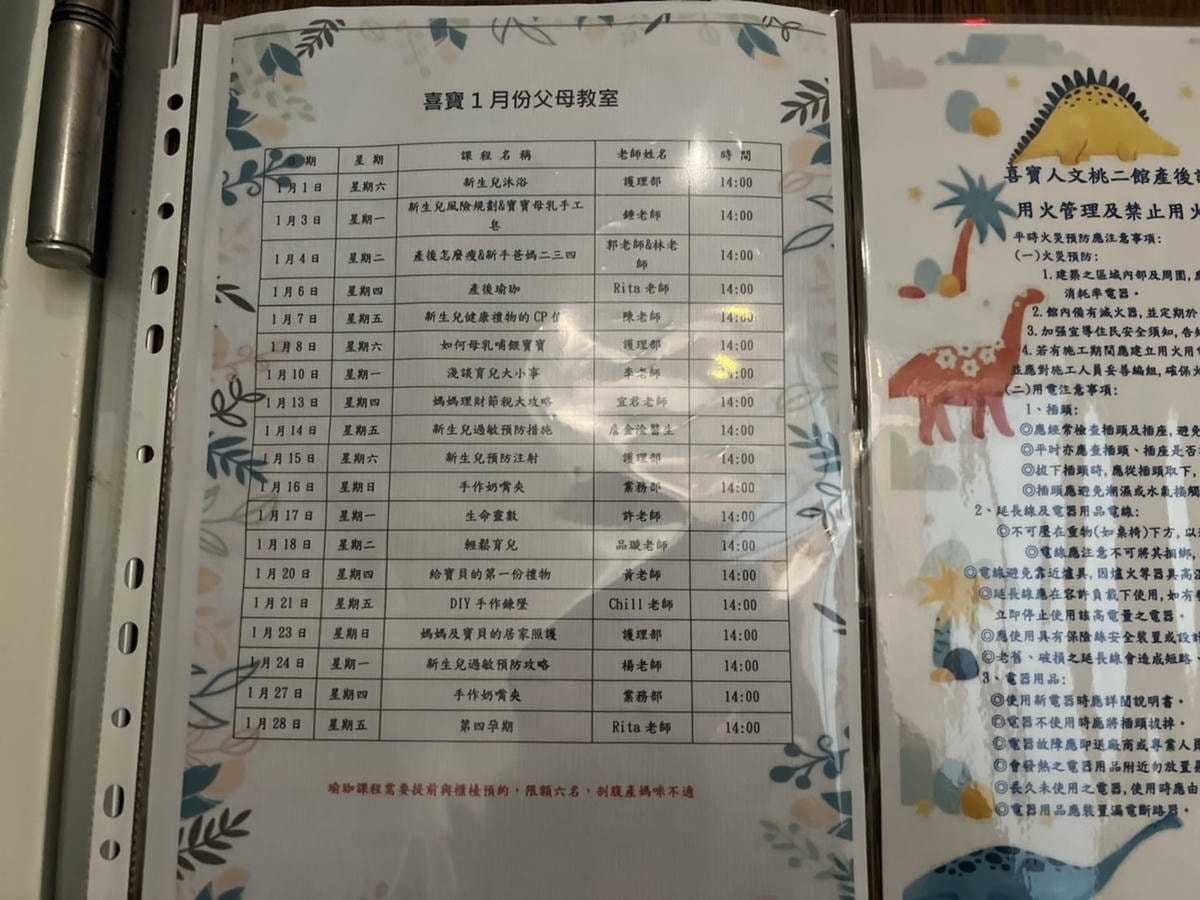 喜寶1月份父母教室
日期 星期 課程名稱 老師姓名 時間
1月1日 星期六 新生兒沐浴 護理部 14:00
1月3日 星期一 新生兒風險規劃&寶寶母乳手工皂 鍾老師 14:00
1月4日 星期二 產後怎麼瘦&新手爸媽二三四 郭老師&林老師 14:00
1月6日 星期四 產後瑜珈 Rita老師 14:00
1月7日 星期五 新生兒健康禮物的CP值 陳老師 14:00
1月8日 星期六 如何母乳哺餵寶寶 護理部 14:00
1月10日 星期一 淺談育兒大小事 李老師 14:00
1月13日 星期四 媽媽理財節稅大攻略 宜君老師 14:00
1月14日 星期五 新生兒過敏預防措施 詹金淦醫生 14:00
1月15日 星期六 新生兒預防注射 護理部 14:00
1月16日 星期日 手作奶嘴夾 業務部 14:00
1月17日 星期一 生命靈數 許老師 14:00
1月18日 星期二 輕鬆育兒 品璇老師 14:00
1月20日 星期四 給寶貝的第一份禮物 黃老師 14:00
1月21日 星期五 DIY手作鍊墜 Chill老師 14:00
1月23日 星期日 媽媽及寶貝的居家照護 護理部 14:00
1月24日 星期一 新生兒過敏預防攻略 楊老師 14:00
1月27日 星期四 手作奶嘴夾 業務部 14:00
1月28日 星期五 第四孕期 Rita老師 14:00
瑜珈課程需要提前與櫃檯預約，限額六名，剖腹產媽咪不適
喜寶人文桃二館產後
用火管理及禁止用火
平時火災預防應注意事項:
(一)火災預防:
1.建築之區域內部及周圍,
消耗率電器。
2.館內備有滅火器,並定期於
3.加強宣導住民安全須知,告
4.若有施工期間應建立用火用
並應對施工人員妥善編組,確保火
(二)用電注意事項:
1、插頭:
◎應經常檢查插頭及插座,避免
◎平時亦應查插頭、插座是否
◎拔下插頭時,應從插頭取下,
◎插頭應避免潮濕或水氣接觸
2、延長線及電器用品電線:
◎不可壓在重物(如桌椅)下方,以
◎電線應注意不可將其捆綁,
◎電線避免靠近爐具,因爐火等器具高溫
◎延長線應在容許負載下使用,如有
立即停止使用該高電量之電器。
◎應使用具有保險絲安全裝置或設計
◎老舊、破損之延長線會造成短路、
3、電器用品:
◎使用新電器時應詳閱說明書。
◎電器不使用時應將插頭拔掉。
◎電器故障應即送廠商或專業人員
◎會發熱之電器用品附近勿放置易
◎長久未使用之電器,使用時應由
◎電器用品應裝置漏電斷路器。